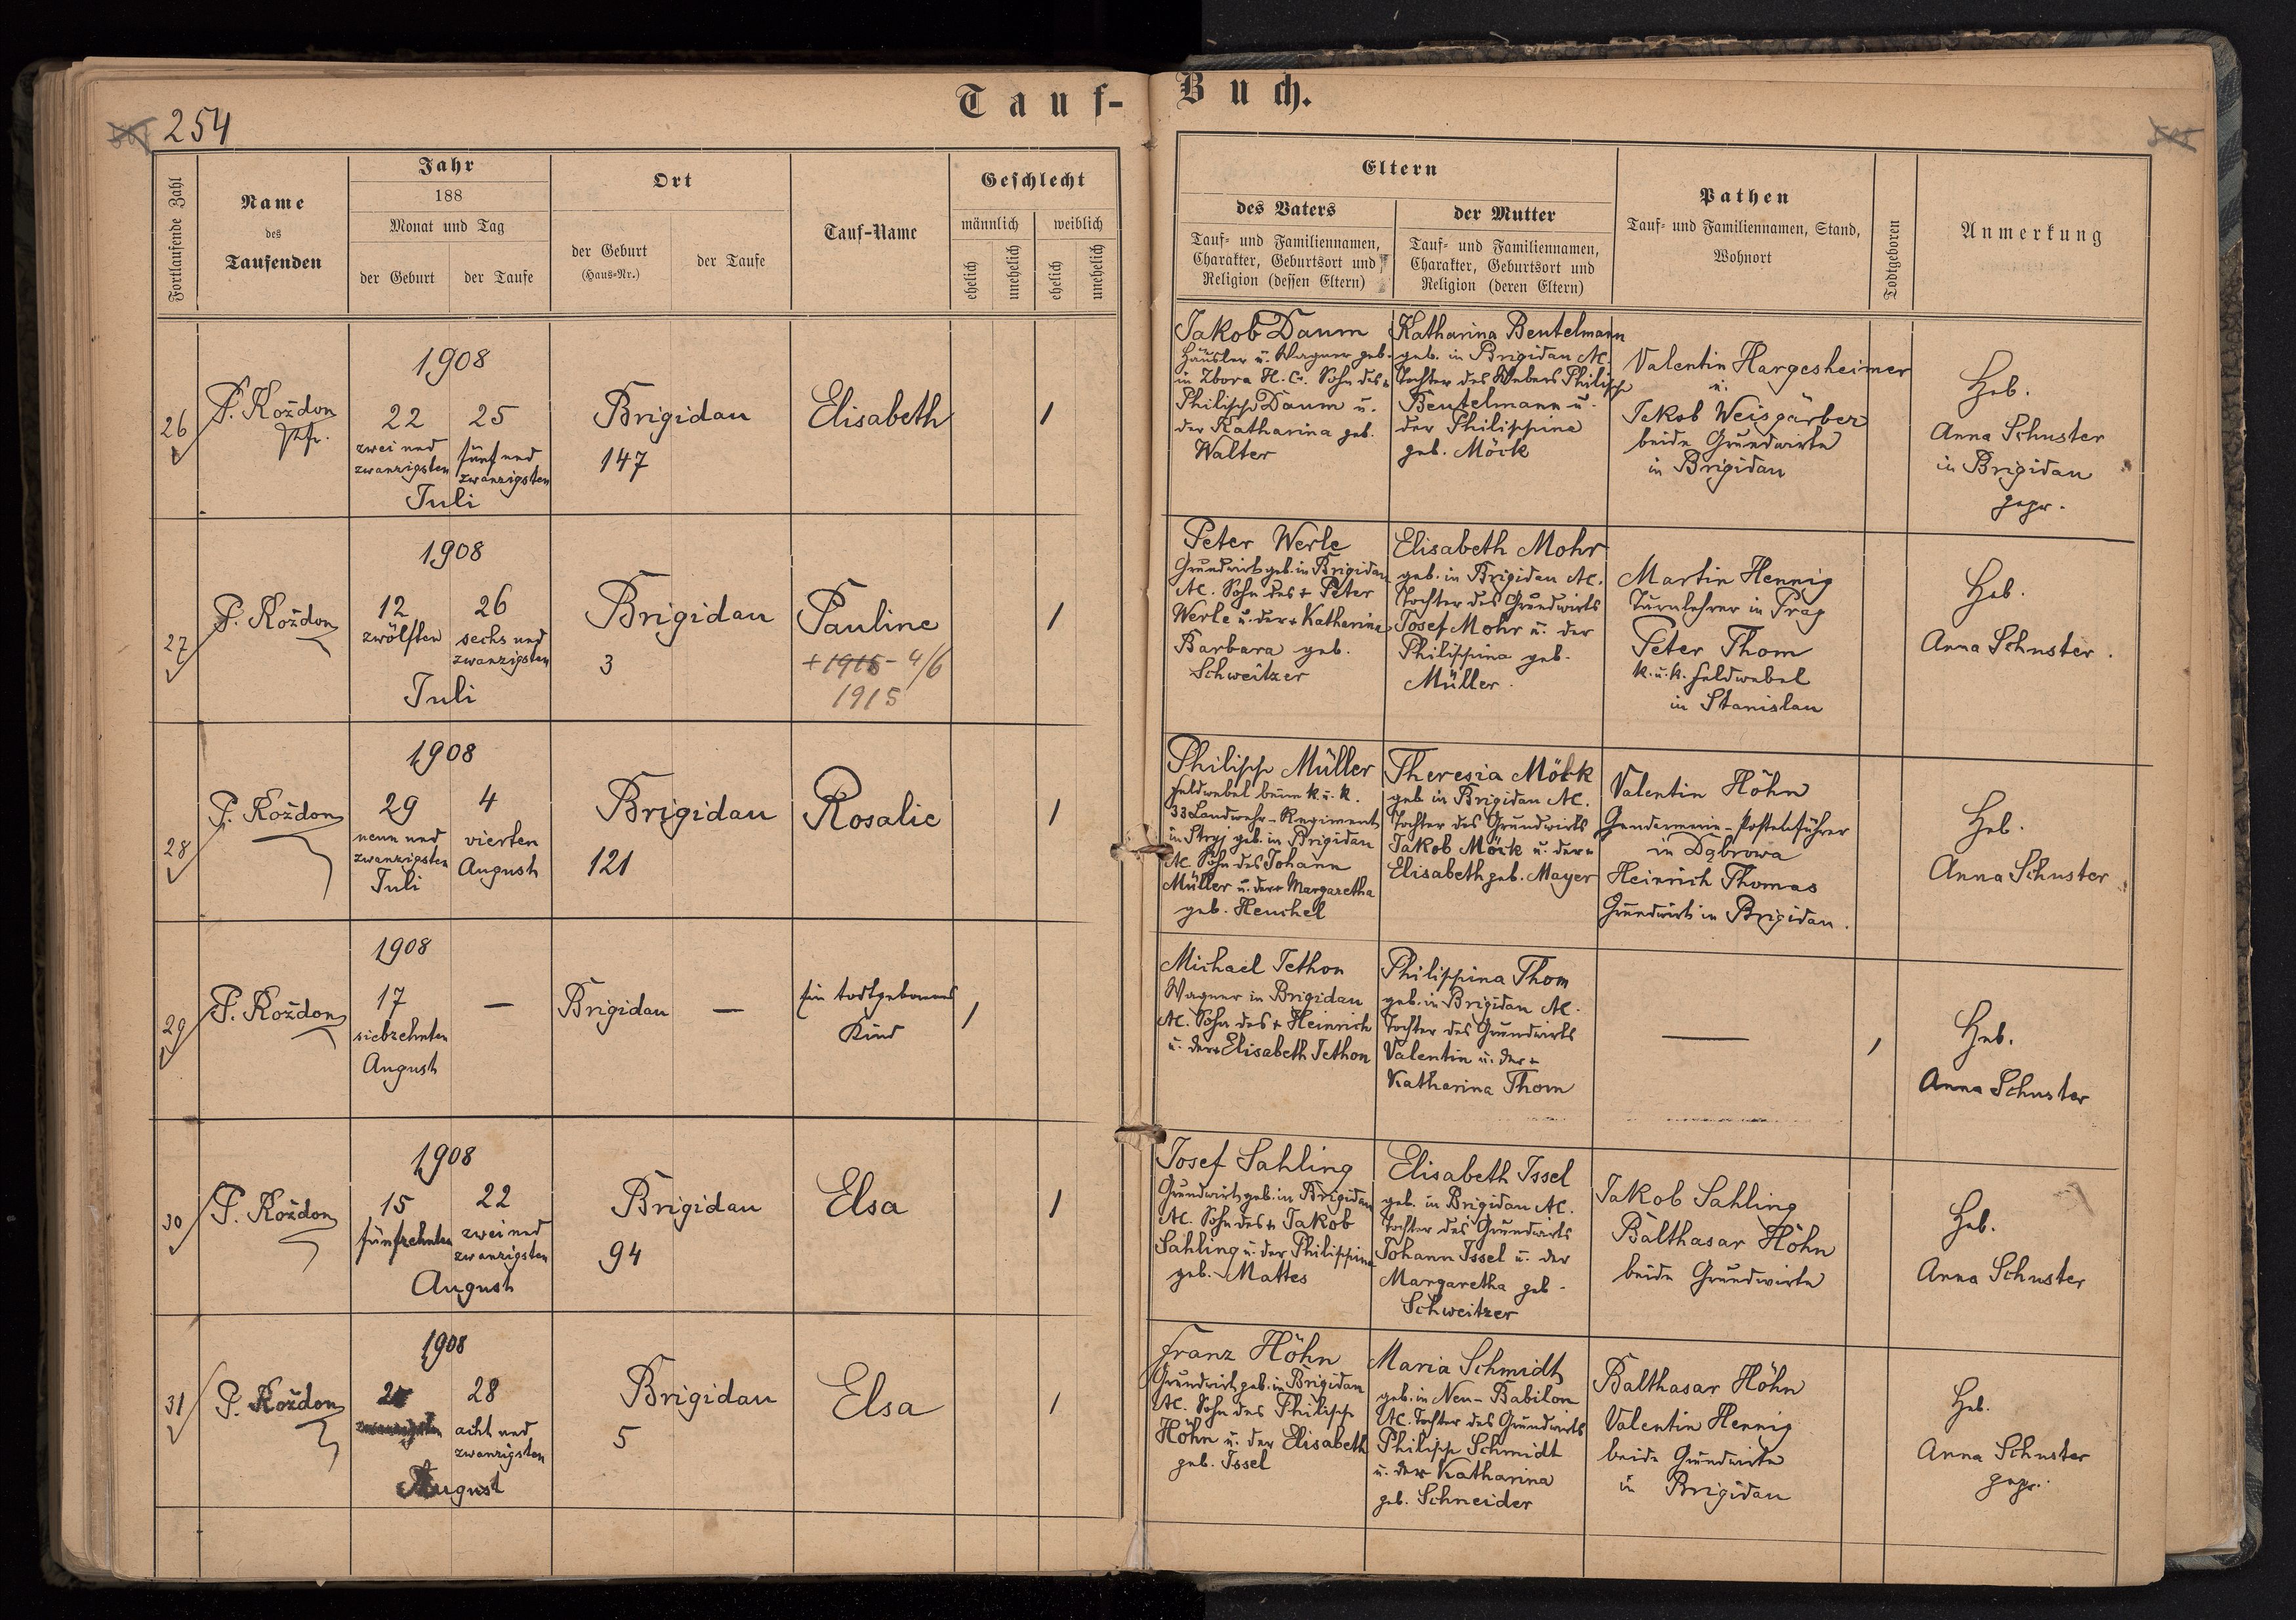 Tauf-Buch.
254
Fortlaufende Zahl
Name
des
Taufenden
Jahr
188
Monat und Tag
der Geburt
der Taufe
Ort
der Geburt
(Haus-Nr.)
der Taufe
Tauf-Name
Geschlecht
männlich
weiblich
ehelich
unehelich
ehelich
unehelich
Eltern
des Vaters
Tauf- und Familiennamen,
Charakter, Geburtsort und
Religion (dessen Eltern)
der Mutter
Tauf- und Familiennamen,
Charakter, Geburtsort und
Religion (deren Eltern)
Pathen
Tauf- und Familiennamen, Stand,
Wohnort
Todtgeboren
Anmerkung
26
P. Koždon
Pfr.
1908
22
zwei und
zwanzigsten
25
fünf und
zwanzigsten
Juli
Brigidau
147
Elisabeth
1
Jakob Daum
Häusler u. Wagner geb.
in Zbora H. C. Sohn des +
Philipp Daum u.
der Katharina geb.
Walter
Katharina Beutelmann
geb. in Brigidau AC.
Tochter des Webers Philipp
Beutelmann u.
der Philippine
geb. Möck
Valentin Hargesheimer
u.
Jakob Weisgärber
beide Grundwirte
in Brigidau
Heb.
Anna Schuster
in Brigidau
gepr.
27
P. Koždon
1908
12
zwölften
26
sechs und
zwanzigsten
Juli
Brigidau
3
Pauline
+ 1915 - 4/6
1915
1
Peter Werle
Grundwirt geb. in Brigidau
AC. Sohn des + Peter
Werle u. der + Katharina
Barbara geb.
Schweitzer
Elisabeth Mohr
geb. in Brigidau AC.
Tochter des Grundwirts
Josef Mohr u. der
Philippina geb.
Müller.
Martin Hennig
Turnlehrer in Prag
Peter Thom
k. u. k. Feldwebel
in Stanislau
Heb.
Anna Schuster.
28
P. Koždon
1908
29
neun und
zwanzigsten
Juli
4
vierten
August
Brigidau
121
Rosalie
1
Philipp Müller
Feldwebel beim k. u. k.
33 Landwehr-Regiment
in Stryj geb. in Brigidau
AC. Sohn des Johann
Müller u. der + Margaretha
geb. Heuchel
Theresia Möck
geb. in Brigidau AC.
Tochter des Grundwirts
Jakob Möck u. der +
Elisabeth geb. Mayer
Valentin Höhn
Gendarmerie-Postenführer
in Dąbrowa
Heinrich Thomas
Grundwirt in Brigidau.
Heb.
Anna Schuster
29
P. Koždon
1908
17
siebzehnten
August
—
Brigidau
—
Ein todtgeborenes
Kind
1
Michael Jethon
Wagner in Brigidau
AC. Sohn des + Heinrich
u. der + Elisabeth Jethon
Philippina Thom
geb. in Brigidau AC.
Tochter des Grundwirts
Valentin u. der +
Katharina Thom
—
1
Heb.
Anna Schuster
30
P. Koždon
1908
15
fünfzehnten
22
zwei und
zwanzigsten
August
Brigidau
94
Elsa
1
Josef Sahling
Grundwirt geb. in Brigidau
AC. Sohn des + Jakob
Sahling u. der Philippina
geb. Mattes
Elisabeth Issel
geb. in Brigidau AC.
Tochter des Grundwirts
Johann Issel u. der
Margaretha geb.
Schweitzer
Jakob Sahling
Balthasar Höhn
beide Grundwirte
Heb.
Anna Schuster
31
P. Koždon
1908
28
acht und
zwanzigsten
August
Brigidau
5
Elsa
1
Franz Höhn
Grundwirt geb. in Brigidau
AC. Sohn des Philipp
Höhn u. der Elisabeth
geb. Issel
Maria Schmidt
geb. in Neu-Babilon
AC. Tochter des Grundwirts
Philipp Schmidt
u. der + Katharina
geb. Schneider
Balthasar Höhn
Valentin Hennig
beide Grundwirte
in Brigidau
Heb.
Anna Schuster
gepr.